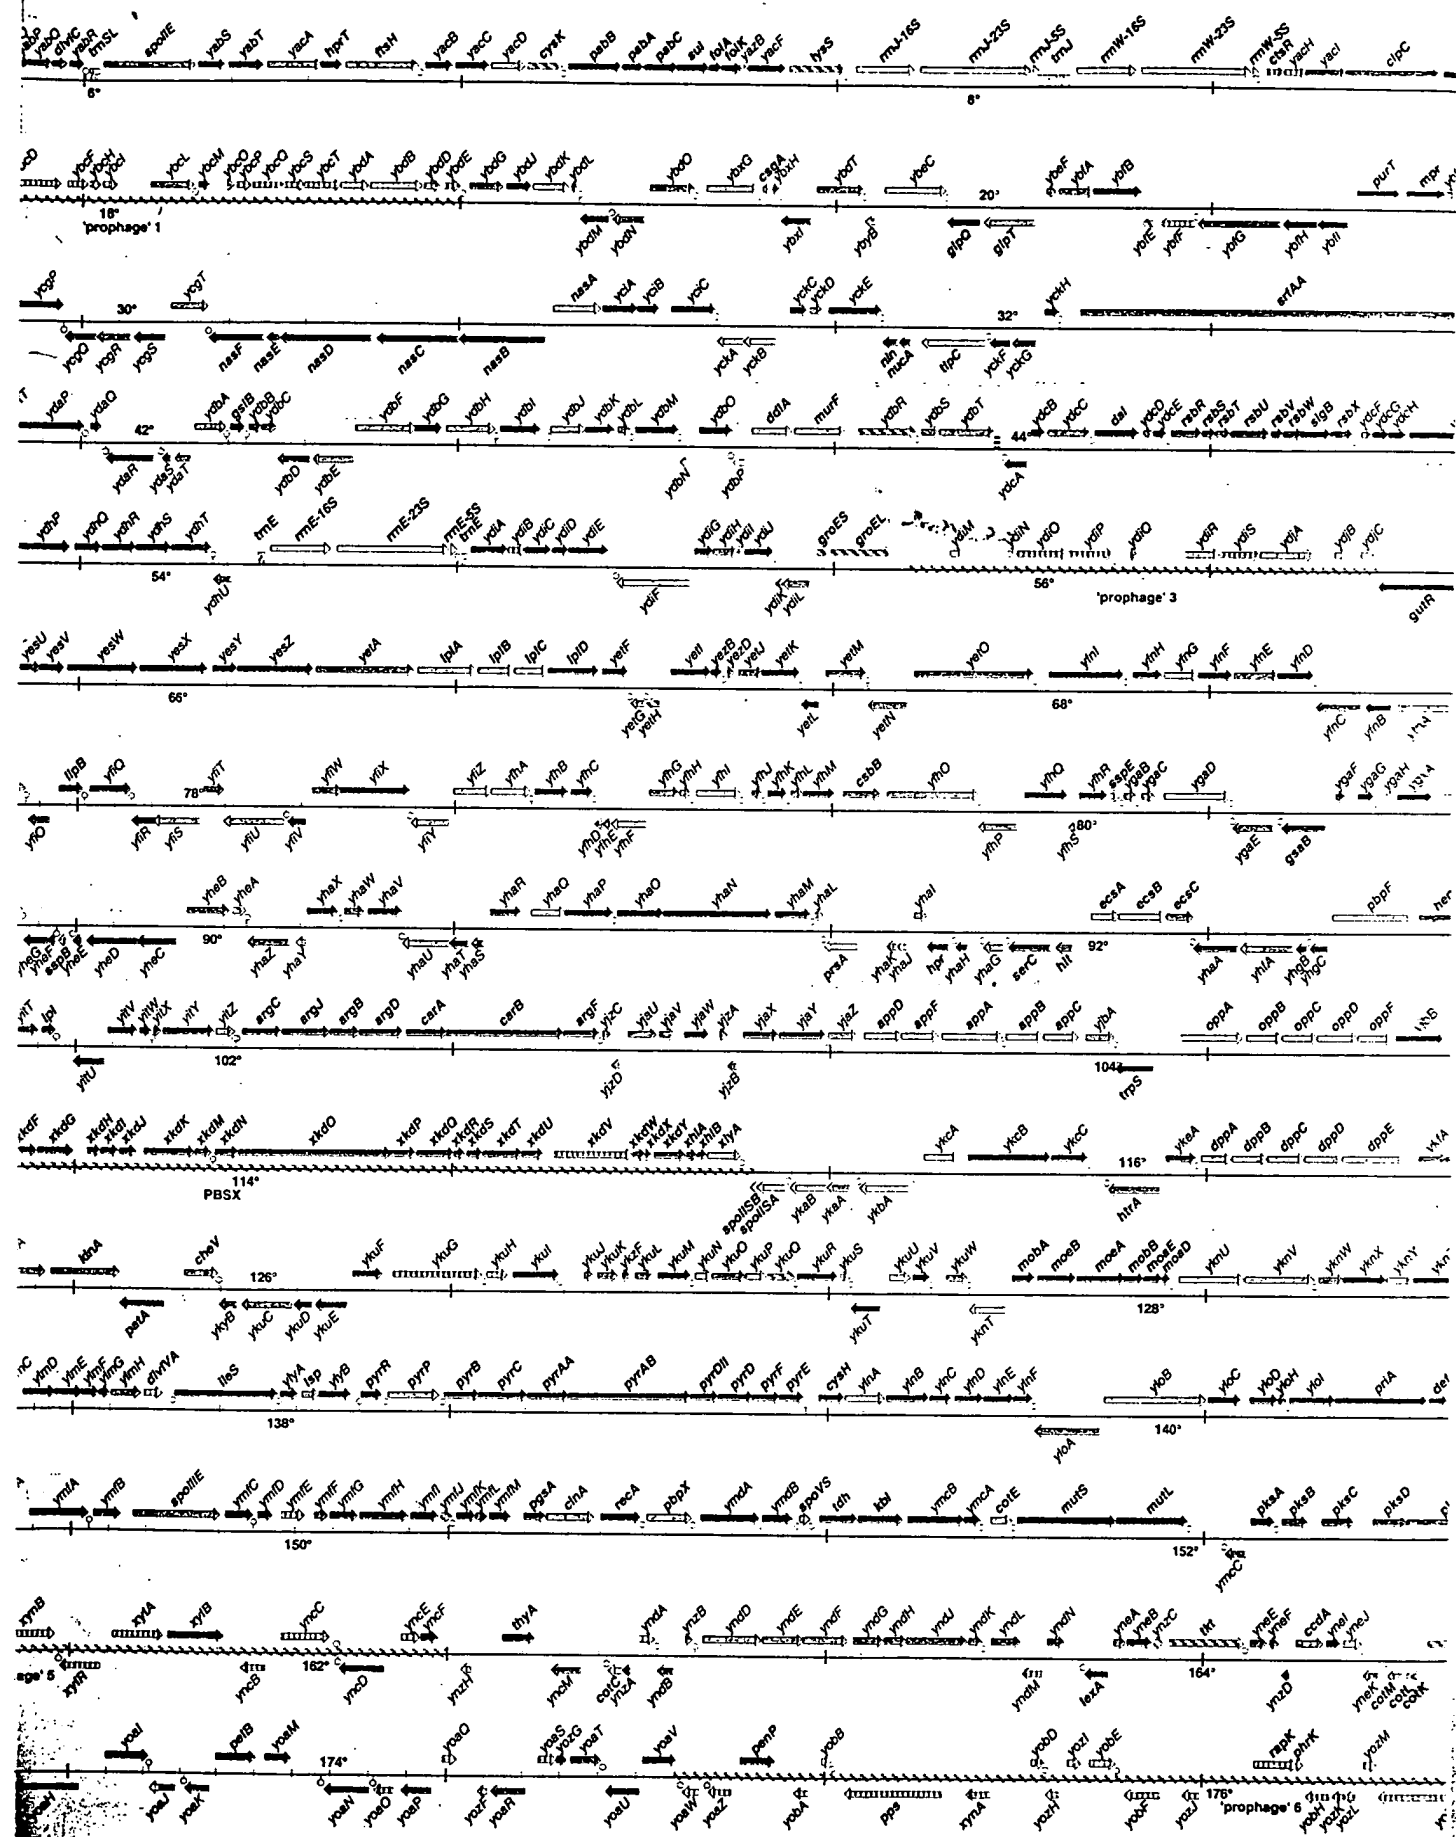 yabP yabQ divIC yabR trnSL spoIIE yabS yabT yacA hprT ftsH yacB yacC yacD cysK pabB pabA pabC sul folA folK yazB yacF lysS rrnJ-16S rrnJ-23S rrnJ-5S trnJ rrnW-16S rrnW-23S rrnW-5S ctsR yacH yacI clpC
6° 8°
ybcF ybcH ybcI ybcL ybcM ybcO ybcP ybcQ ybcS ybcT ybdA ybdB ybdD ybdE ybdG ybdJ ybdK ybdL ybdO ybxG csgA ybxH ybdT ybeC ybeF ybfA ybfB purT mpr
18° 20°
'prophage' 1
ybdM ybdN ybxI ybyB glpQ glpT ybfE ybfF ybfG ybfH ybfI
ycgP ycgT nasA yciA yciB yciC yckC yckD yckE yckH srfAA
30° 32°
ycgQ ycgR ycgS nasF nasE nasD nasC nasB yckA yckB nin nucA tlpC yckF yckG
ydaP ydaQ ydbA gsiB ydbB ydbC ydbF ydbG ydbH ydbI ydbJ ydbK ydbL ydbM ydbO ddlA murF ydbR ydbS ydbT ydcB ydcC dal ydcD ydcE rsbR rsbS rsbT rsbU rsbV rsbW sigB rsbX ydcF ydcG ydcH
42° 44°
ydaR ydaS ydaT ydbD ydbE ydbN ydbP ydcA
ydhP ydhQ ydhR ydhS ydhT trnE rrnE-16S rrnE-23S rrnE-5S trnE ydiA ydiB ydiC ydiD ydiE ydiG ydiH ydiI ydiJ groES groEL ydiM ydiN ydiO ydiP ydiQ ydiR ydiS ydjA ydjB ydjC
54° 56°
'prophage' 3
ydhU ydiF ydiK ydiL gutR
yesU yesV yesW yesX yesY yesZ yetA lplA lplB lplC lplD yetF yetI yezB yezD yetJ yetK yetM yetO yfnI yfnH yfnG yfnF yfnE yfnD
66° 68°
yetG yetH yetL yetN yfnC yfnB yfnA
lipB yfiQ yfiT yfiW yfiX yfiZ yfhA yfhB yfhC yfhG yfhH yfhI yfhJ yfhK yfhL yfhM csbB yfhO yfhQ yfhR sspE ygaB ygaC ygaD ygaF ygaG ygaH
78° 80°
yfiO yfiR yfiS yfiU yfiV yfiY yfhD yfhE yfhF yfhP yfhS ygaE gsaB
yheB yheA yhaX yhaW yhaV yhaR yhaQ yhaP yhaO yhaN yhaM yhaL yhaI ecsA ecsB ecsC pbpF
90° 92°
yheG yheF sspB yheE yheD yheC yhaZ yhaY yhaU yhaT yhaS prsA yhaK yhaJ hpr yhaH yhaG serC hit yhaA yhfA yhgB yhgC
yitT ipi yitV yitW yitX yitY yitZ argC argJ argB argD carA carB argF yjzC yjaU yjaV yjaW yjzA yjaX yjaY yjaZ appD appF appA appB appC yjbA oppA oppB oppC oppD oppF
102° 104°
yitU yjzD yjzB trpS
xkdF xkdG xkdH xkdI xkdJ xkdK xkdM xkdN xkdO xkdP xkdQ xkdR xkdS xkdT xkdU xkdV xkdW xkdX xkdY xhlA xhlB xlyA ykcA ykcB ykcC ykeA dppA dppB dppC dppD dppE ykfA
114° 116°
PBSX
spoIISB spoIISA ykaB ykaA ykbA htrA
kinA cheV ykuF ykuG ykuH ykuI ykuJ ykuK ykzF ykuL ykuM ykuN ykuO ykuP ykuQ ykuR ykuS ykuU ykuV ykuW mobA moeB moeA mobB moaE moaD yknU yknV yknW yknX yknY
126° 128°
patA ykyB ykuC ykuD ykuE ykuT yknT
ylmD ylmE ylmF ylmG ylmH divIVA ileS ylyA lsp ylyB pyrR pyrP pyrB pyrC pyrAA pyrAB pyrDII pyrD pyrF pyrE cysH ylnA ylnB ylnC ylnD ylnE ylnF yloB yloC yloD yloH yloI priA def
138° 140°
yloA
ymfA ymfB spoIIIE ymfC ymfD ymfE ymfF ymfG ymfH ymfI ymfJ ymfK ymfL ymfM pgsA cinA recA pbpX ymdA ymdB spoVS tdh kbl ymcB ymcA cotE mutS mutL pksA pksB pksC pksD
150° 152°
ymcC
xynB xylA xylB yncC yncE yncF thyA yndA ynzB yndD yndE yndF yndG yndH yndJ yndK yndL yndN yneA yneB ynzC tkt yneE yneF ccdA yneI yneJ
162° 164°
age' 5 xylR yncB yncD ynzH yncM cotC ynzA yndB yndM lexA ynzD yneK cotM cotL cotK
yoaI pelB yoaM yoaQ yoaS yozG yoaT yoaV penP yobB yobD yozI yobE rapK phrK yozM
174° 176°
'prophage' 6
yoaH yoaJ yoaK yoaN yoaO yoaP yozF yoaR yoaU yoaW yoaZ yobA pps xynA yozH yobF yozJ yobH yozK yozL